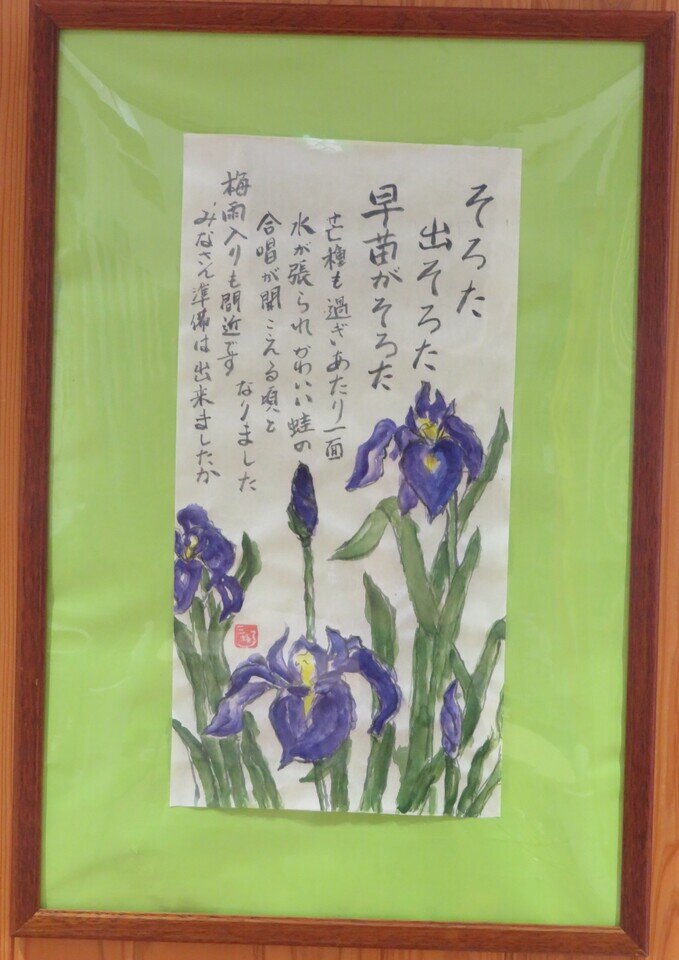 そろた
出そろた
早苗がそろた
芒種も過ぎあたり一面
水が張られかわいい蛙の
合唱が聞こえる頃と
なりました
梅雨入りも間近です
みなさん準備は出来ましたか